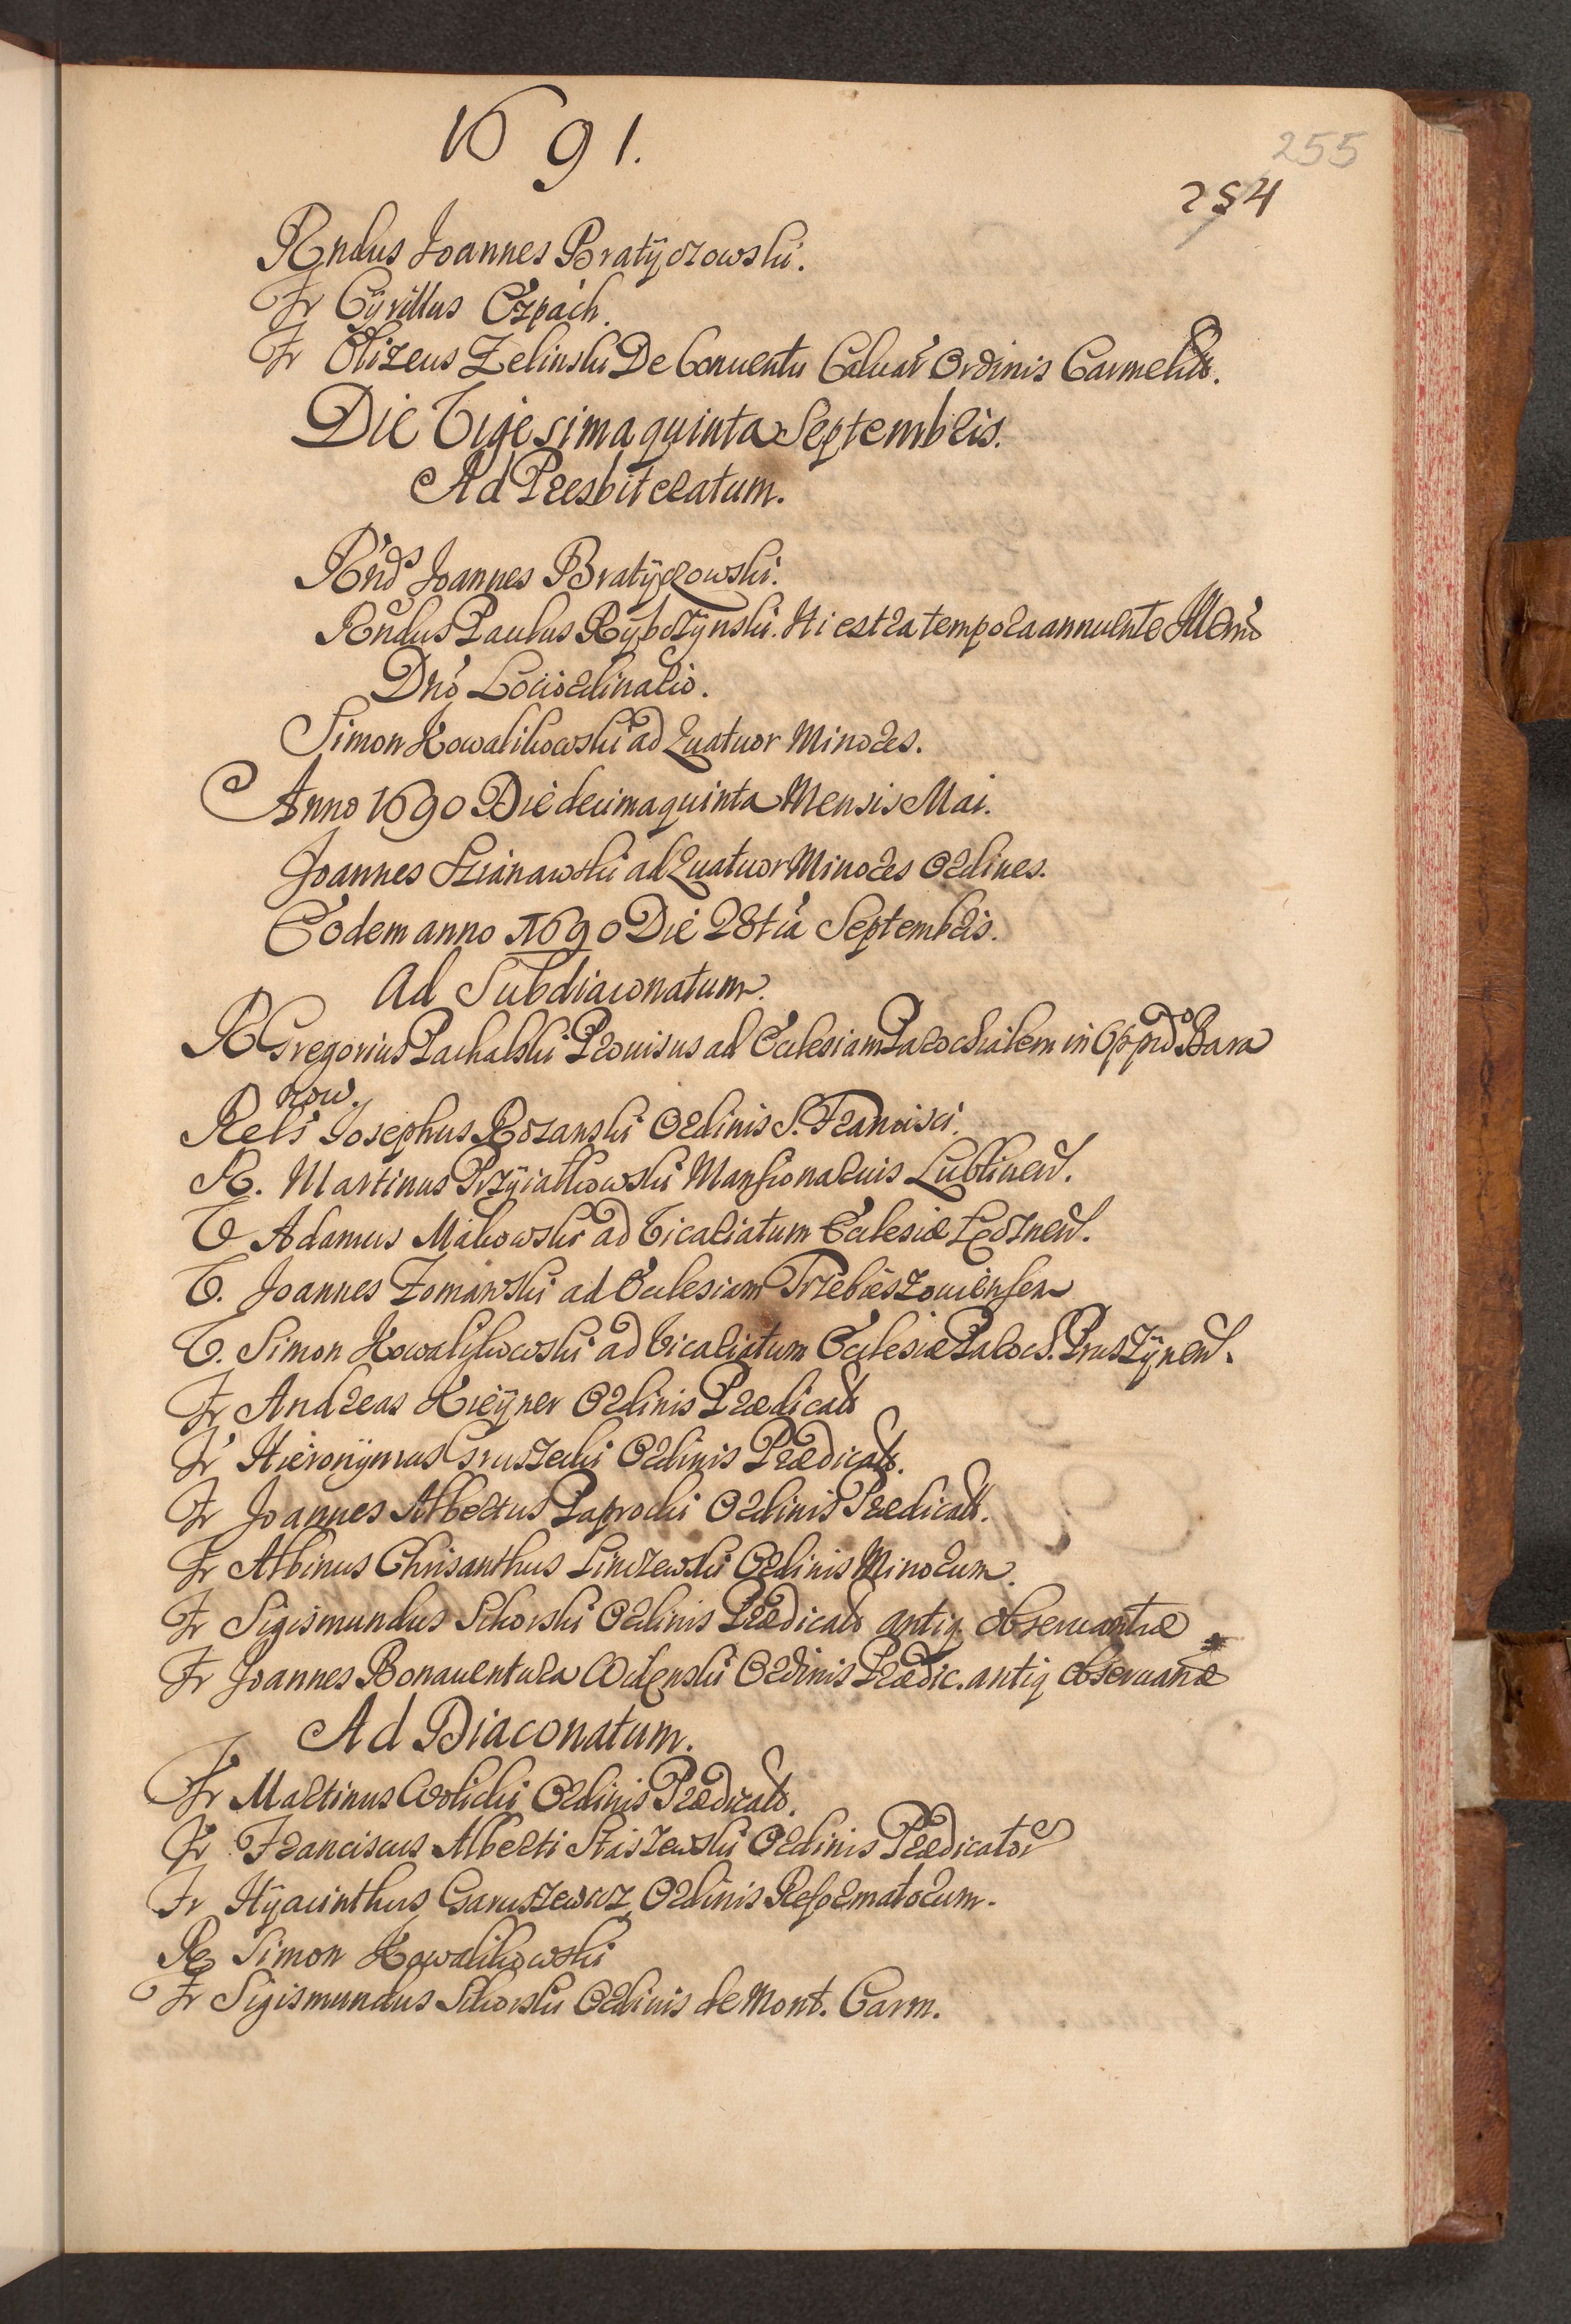 1691.
255
254
Rndus Joannes Bratyczowski.
Fr Cÿrillus Czpach.
Fr Elizeus Zelinski De Conuentu Caluar Ordinis Carmelit.
Die Vigesima quinta Septembris.
Ad Presbiteratum.
Rnds Joannes Bratÿczowski.
Rndus Paulus Rÿbczÿnski. Hi extra tempora annuente Illmo
Dno Loci ordinario.
Simon Kowalikowski ad Quatuor Minores.
Anno 1690 Die decima quinta Mensis Mai.
Joannes Szianawski ad Quatuor Minores Ordines.
Eodem anno 1690 Die 28tia Septembris.
Ad Subdiaconatum.
R Gregorius Pachalski Prouisus ad Ecclesiam Parochialem in Oppido Bara
now.
Rels Josephus Rozanski Ordinis S. Francisci.
R. Martinus Przÿiatkowski Mansionarius Lublinen.
V Adamus Makowski ad Vicariatum Ecclesiæ
V. Joannes Zomawski ad Ecclesiam Trzebieszouiensem
V. Simon Kowalÿkowski ad Vicariatum Ecclesiæ Paroch. Pruszÿnen.
Fr Andreas Kieÿner Ordinis Prædicato
Fr Hieronÿmus Gruszecki Ordinis Prædicato.
Fr Joannes Albertus Paprocki Ordinis Prædicato.
Fr Albinus Chrisanthus Linczewski Ordinis Minorum.
Fr Sigismundus Sikorski Ordinis Prædicato antiq. obseruantiæ
Fr Joannes Bonauentura Ordinis Prædic. antiq obseruanæ
Ad Diaconatum.
Fr Martinus Wolicki Ordinis Prædicato.
Fr Franciscus Alberti Staszewski Ordinis Prædicator
Fr Hÿacinthus Garuszewicz Ordinis Reformatorum.
R Simon Kowalikowski
Fr Sigismundus Sikorski Ordinis de Mont. Carm.